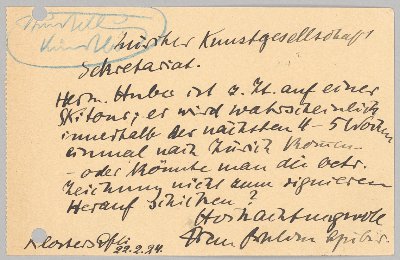 Zürcher Kunstgesellschaft
Sekretariat.
Herm. Huber ist z. Zt. auf einer
Skitour; er wird wahrscheinlich
innerhalb der nächsten 4-5 Wochen
einmal nach Zürich kommen
- oder könnte man die betr.
Zeichnung nicht zum signieren
herauf schicken?
Hochachtungsvoll
Frau
Klosters
22.2.24.